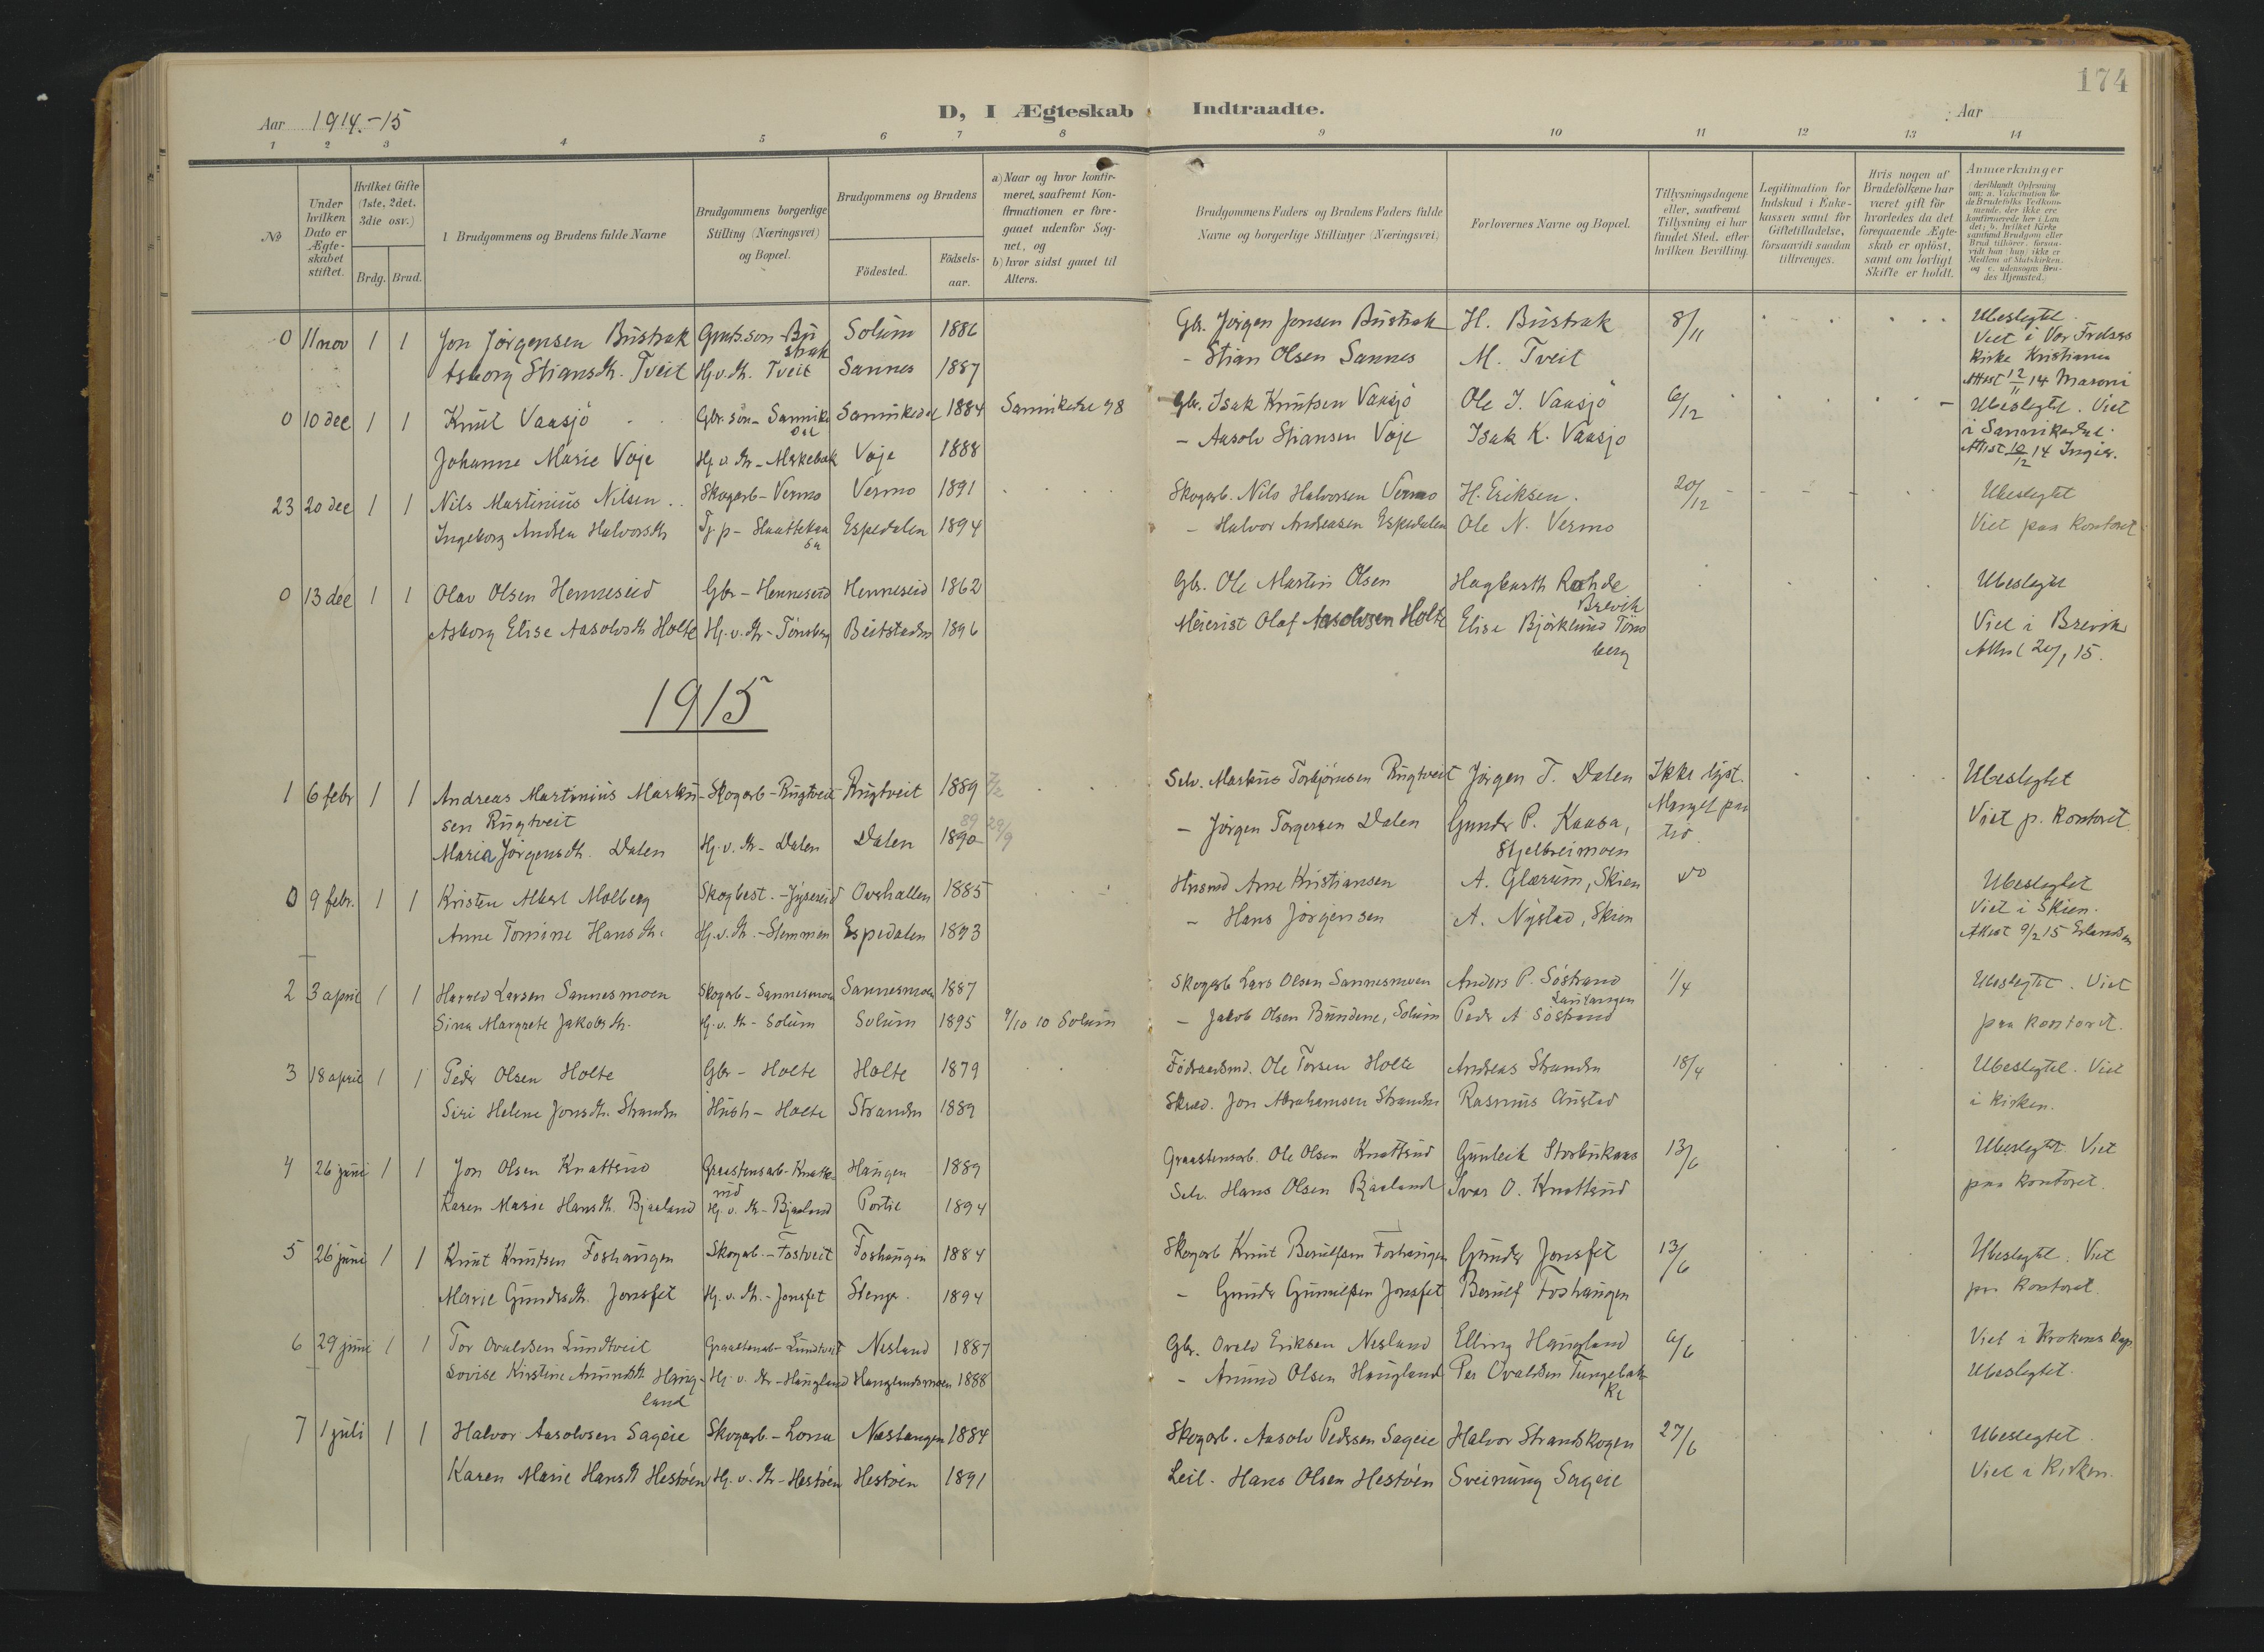 174
Aar 1914.-15
D, I Ægteskab Indtraadte.
Aar
1 2 3 4 5 6 7 8 9 10 11 12 13 14
No
Under hvilken Dato er Ægteskabet stiftet.
Hvilket Gifte (1ste, 2det, 3die osv.)
Brdg. Brud.
Brudgommens og Brudens fulde Navne
Brudgommens borgerlige Stilling (Næringsvei) og Bopæl.
Brudgommens og Brudens
Födested. Födsels-aar.
a) Naar og hvor konfirmeret, saafremt Konfirmationen er foregaaet udenfor Sognet, og
b) hvor sidst gaaet til Alters.
Brudgommens Faders og Brudens Faders fulde Navne og borgerlige Stillinger (Næringsvei)
Forlovernes Navne og Bopæl.
Tillysningsdagene eller, saafremt Tillysning ei har fundet Sted, efter hvilken Bevilling.
Legitimation for Indskud i Enkekassen samt for Giftetilladelse, forsaavidt saadan tiltrænges.
Hvis nogen af Brudefolkene har været gift för hvorledes da det foregaaende Ægteskab er oplöst, samt om lovligt Skifte er holdt.
Anmærkninger
0 11 nov 1 1 Jon Jörgensen Bustrak Gmts.son - Bustrak Solum 1886 Gbr. Jörgen Jensen Bustrak H. Bustrak 8/11 Ubeslegtet.
Asborg Stiansdt. Tveit Hj.v.dt. Tveit Sannes 1887 - Stian Olsen Sannes M. Tveit Viet i Vor Frelsers Kirke Kristiania
Attest 12/11 14
0 10 dec 1 1 Knut Vaasjö Gbr.sön - Sannikedal Sannikedal 1884 Sannikedal 98 Gbr. Isak Knutsen Vaasjö Ole J. Vaasjö 6/12 Ubeslegtet. Viet
Johanne Marie Voje Hj.v.dt - Voje 1888 - Aasolv Stiansen Voje Isak K. Vaasjo i Sannikedal.
Attest 10/12 14
23 20 dec 1 1 Nils Martinius Nilsen Skogarb - Vermo Vermo 1891 Skogarb. Nils Halvorsen Vermo H. Eriksen. 20/12 Ubeslegtet
Ingeborg Andrea Halvorsdt Espedalen 1894 - Halvor Andreasen Espedalen Ole N. Vermo Viet paa kontoret
0 13 dec 1 1 Olav Olsen Henneseid Gbr - Henneseid Henneseid 1862 Gbr. Ole Martin Olsen Hagbarth Rohde Brevik Ubeslegtet
Asborg Elise Aasolvsdt Holte Hj.v.dt - Tönsberg Beitstaden 1896 Meierist Olaf Aasolvsen Holte Elise Björklund Tönsberg Viet i Brevik
1915
1 6 febr 1 1 Andreas Martinius Markussen Rugtveit Skogarb - Rugtveit Rugtveit 1889 7/2 Selv. Markus Torbjörnsen Rugtveit Jörgen T. Dalen Ikke lyst. Ubeslegtet
Maria Jörgensdt. Dalen Hj.v.dt - Dalen Dalen 1890 89 29/9 - Jörgen Torgersen Dalen Gunder P. Kaasa, Stjelbreimoen Mangel paa tid Viet p. kontoret.
0 9 febr. 1 1 Kristen Albert Molberg Skogbest. - Overhallen 1885 Husmd Arne Kristiansen A. Glærum, Skien Do Ubeslegtet
Anne Tomine Hansdt. Hj.v.dt. - Stemmen Espedalen 1893 - Hans Jörgensen A. Nystad, Skien Viet i Skien.
Attest 9/2 15 Erlandsen
2 3 april 1 1 Harald Larsen Sannesmoen Skogarb - Sannesmoen Sannesmoen 1887 Skogarb Lars Olsen Sannesmoen Anders P. Söstrand 1/4 Ubeslegtet. Viet
Sina Margrete Jakobsdt. Hj.v.dt - Solum Solum 1895 9/10 10 Solum - Jakob Olsen Bundene, Solum Peder A Söstrand paa kontoret.
3 18 april 1 1 Peder Olsen Holte Gbr - Holte Holte 1879 Föderaadsmd. Ole Torsen Holte Andreas Stranden 18/4 Ubeslegtet. Viet
Siri Helene Jonsdt. Stranden Hush - Holte Stranden 1889 Skræd. Jon Abrahamsen Stranden Rasmus Austad i kirken.
4 26 juni 1 1 Jon Olsen Knattsud Graastensarb - Knattsud Haugen 1889 Graastensarb. Ole Olsen Knattsud Gunleik Storbukaas 13/6 Ubeslegtet. Viet
Karen Marie Hansdt. Bjaaland Hj.v.dt - Bjaaland Portie 1894 Selv. Hans Olsen Bjaaland Ivar O. Knattsud paa kontoret.
5 26 juni 1 1 Knut Knutsen Foshaugen Skogarb. - Fostveit Foshaugen 1884 Skogarb Knut Berulfsen Foshaugen Gunder Jonsfet 13/6 Ubeslegtet. Viet
Marie Gundersdt. Jonsfet Hj.v.dt. - Jonsfet Stenge 1894 - Gunder Gunulfsen Jonsfet Berulf Foshaugen paa kontoret.
6 29 juni 1 1 Tor Ovaldsen Lundtveit Graastensab - Lundtveit Nesland 1887 Gbr. Ovald Eriksen Nesland Elling Haugland 6/6 Viet i Krokens kap.
Lovise Kirstine Amundsdt Haugland Hj.v.dt - Haugland Hauglandsmoen 1888 - Amund Olsen Haugland Per Ovaldsen Tungebakke Ubeslegtet.
7 1 juli 1 1 Halvor Aasolvsen Sageie Skogarb. - Lona Næstangen 1884 Skogarb. Aasolv Pedersen Sageie Halvor Strandskogen 27/6 Ubeslegtet.
Karen Marie Hansdt Hestöen Hj.v.dt - Hestöen Hestöen 1891 Leil. Hans Olsen Hestöen Sveinung Sageie Viet i Kirken.